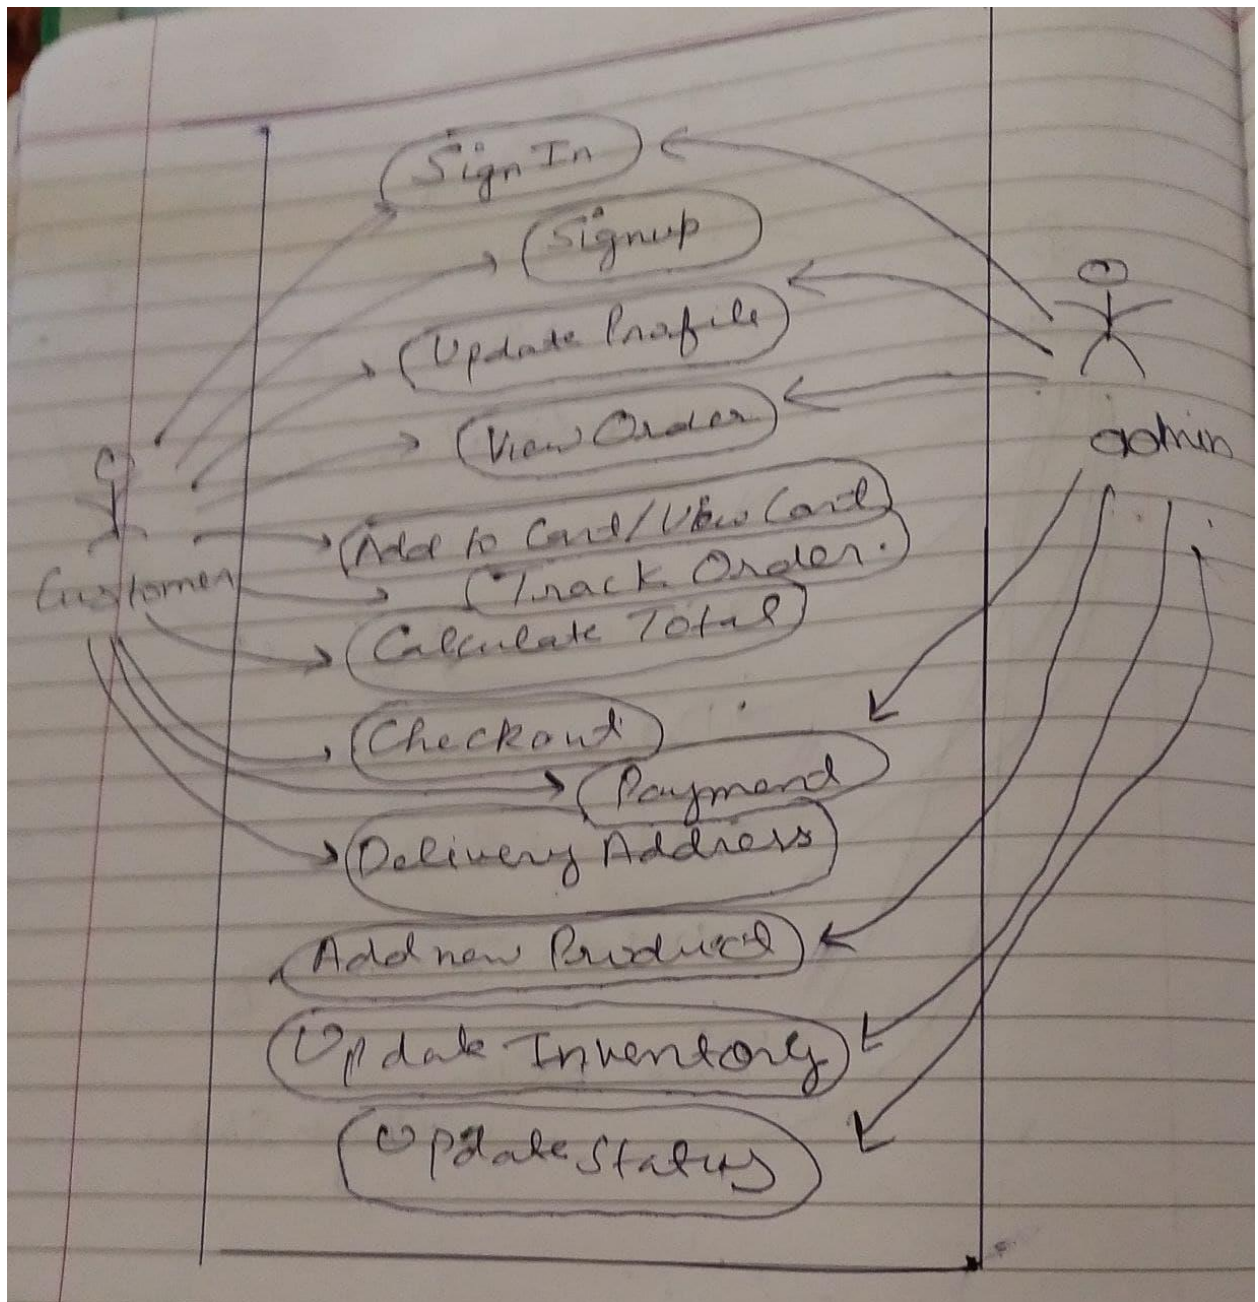 Sign In
Signup
Update Profile
View Order
admin
Add to Card/View Card
Track Order.
Customer
Calculate Total
Checkout
Payment
Delivery Address
Add new Product
Update Inventory
Update Status